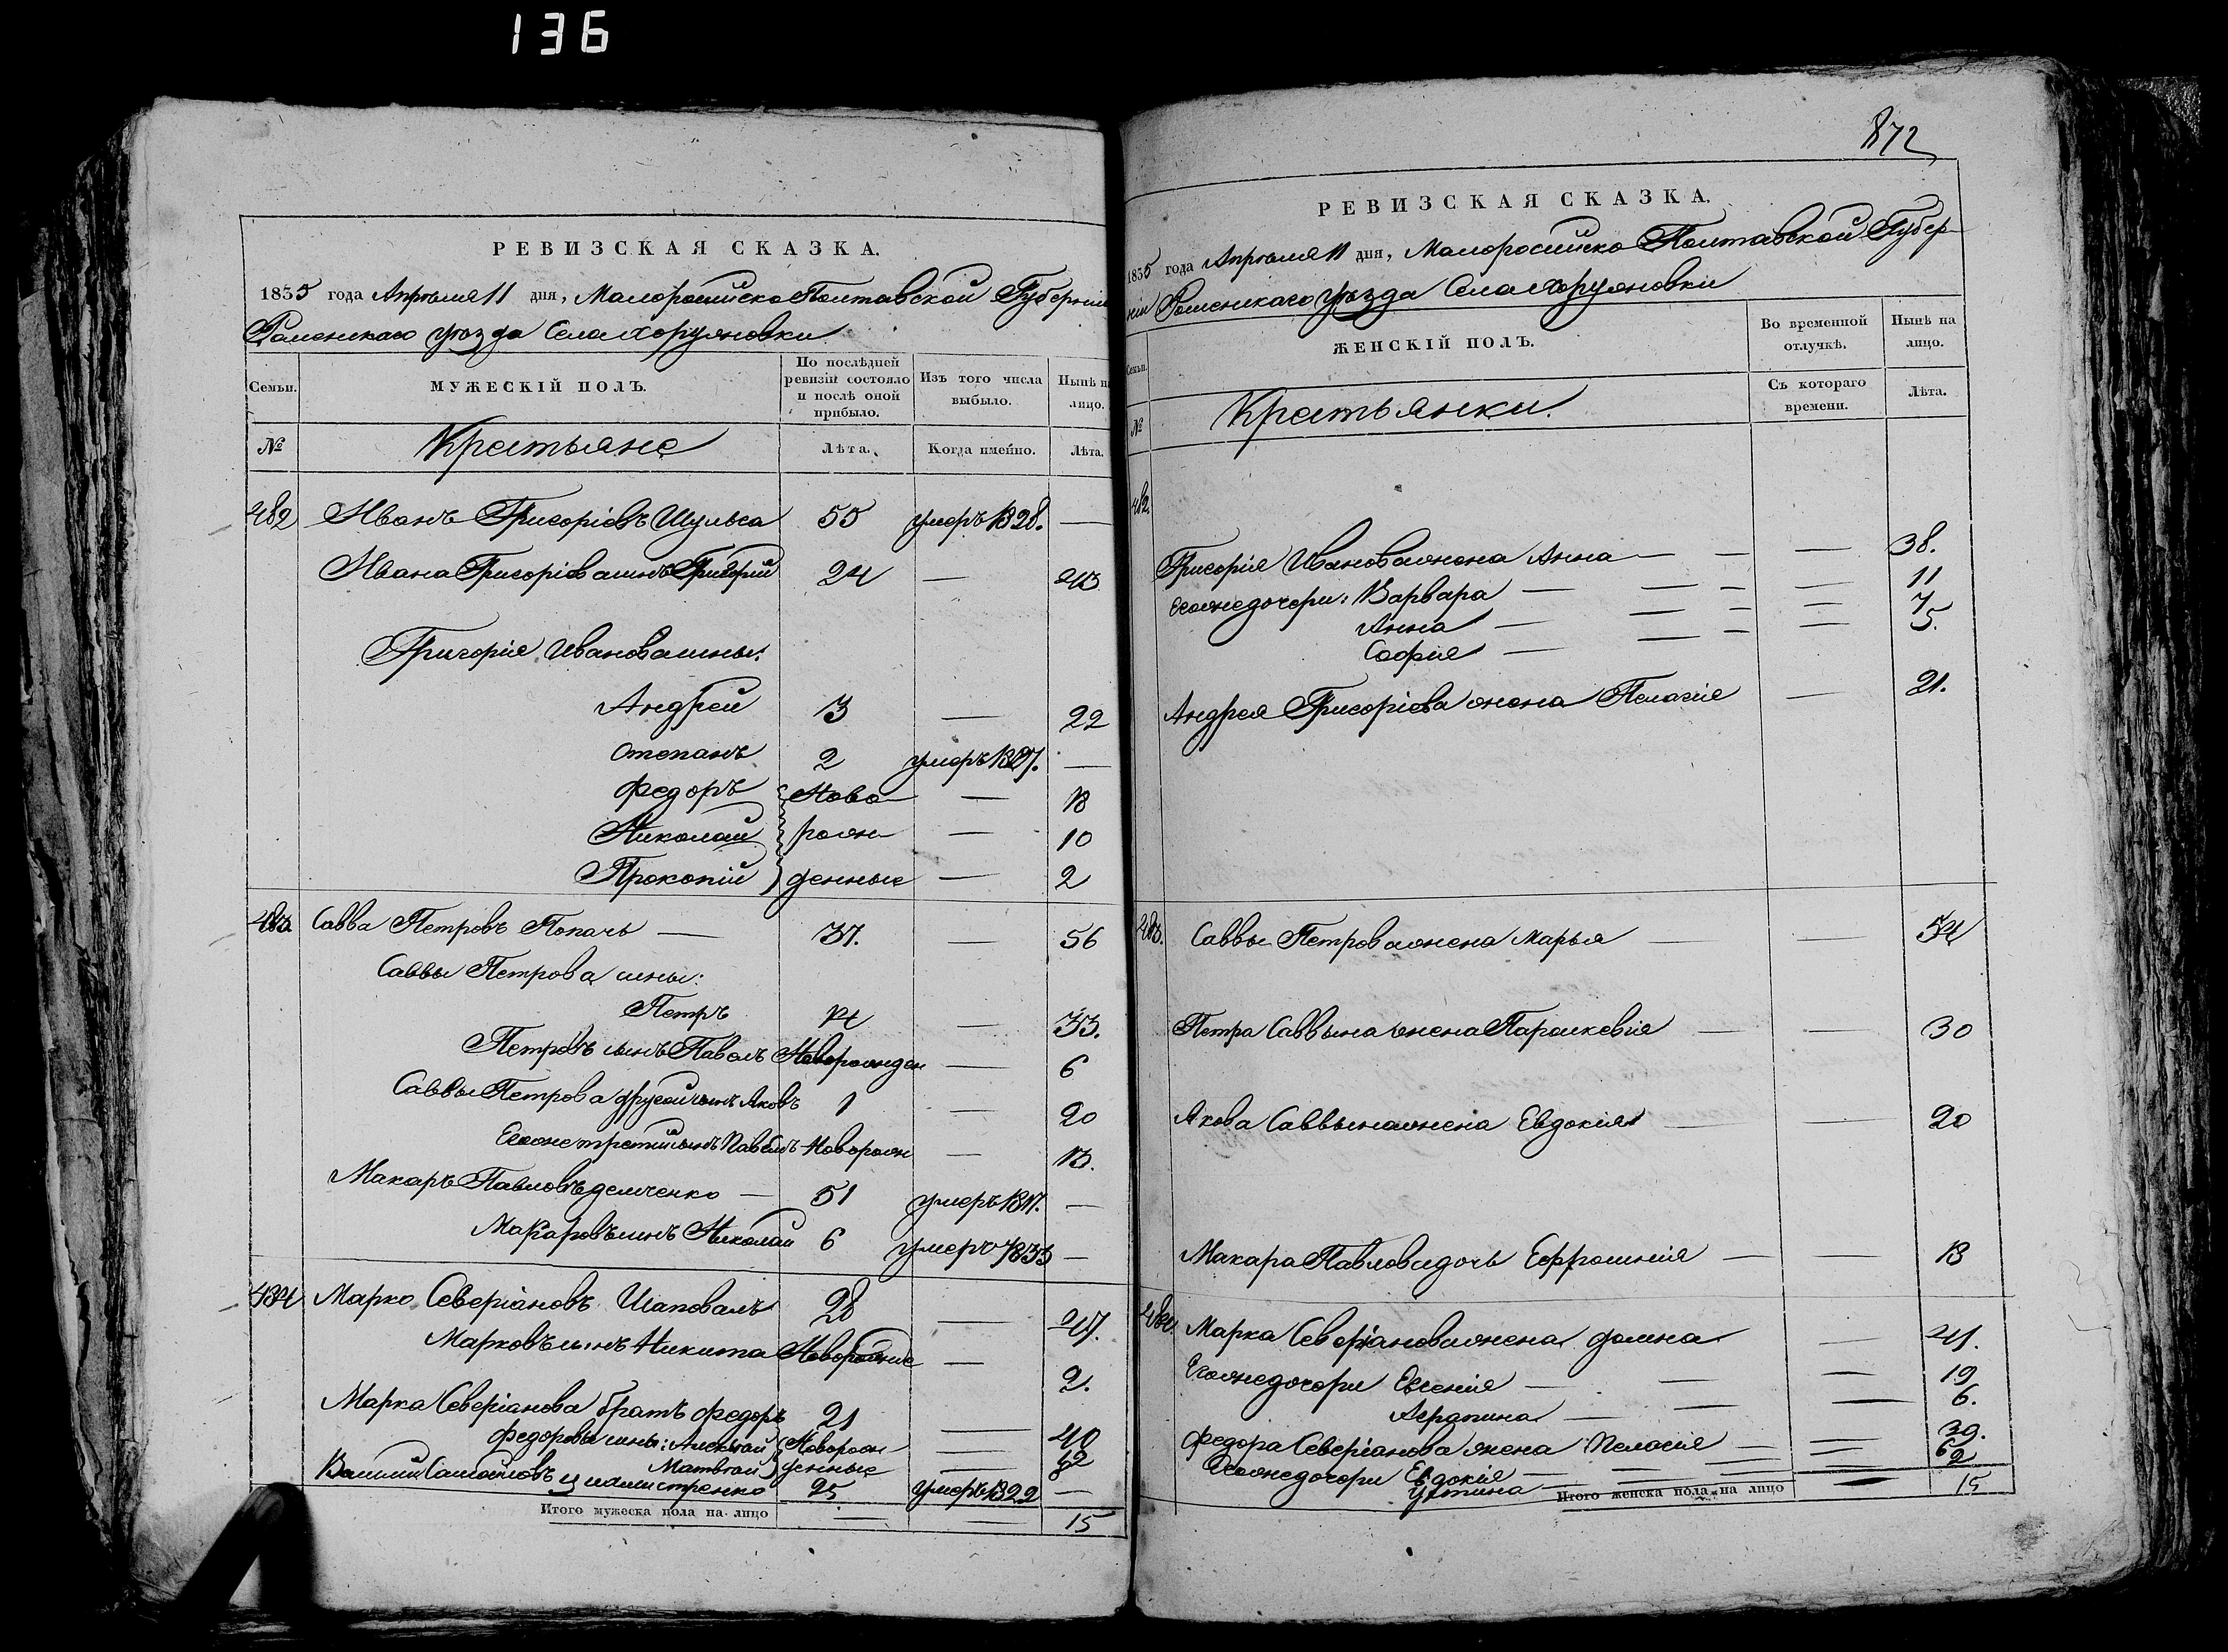 136
РЕВИЗСКАЯ СКАЗКА.
1835 года Апрѣля 11 дня, Малоросійско Полтавской Губерніи
Роменскаго уѣзда Села Хоружовки
Семьи.
МУЖЕСКІЙ ПОЛЪ.
По послѣдней ревизіи состояло и послѣ оной прибыло.
Изъ того числа выбыло.
Нынѣ на лицо.
№
Крестьяне
Лѣта.
Когда имейно.
Лѣта.
482 Иванъ Григоріевъ Шулька 55 умеръ 1828. —
Ивана Григоріева сынъ Григорій 24 — 43
Григорія Иванова сыны:
Андрей 3 — 22
Степанъ 2 умеръ 1827. —
Федоръ Ново — 18
Николай рож — 10
Прокопій денные — 2
483. Савва Петровъ Попачь — 37. — 56
Саввы Петрова сыны:
Петръ 14 — 33.
Петровъ сынъ Павелъ Новорожден — 6
Саввы Петрова другой сынъ Яковъ 1 — 20
Егоже третий сынъ Павелъ Новорож — 13.
Макаръ Павловъ демченко — 51 умеръ 1817. —
Макаровъ сынъ Николай 6 умеръ 1833 —
484 Марко Севріановъ Шаповалъ 28 — 47.
Марковъ сынъ Никита Новорожде — 2.
Марка Севріанова братъ Федоръ 21 — 40
Федоровы сыны: Алексѣй Новорож — 12
Матвѣй денные — 8
Василий Самойловъ 25 умеръ 1822 —
Итого мужеска пола на лицо — — 15
872
РЕВИЗСКАЯ СКАЗКА.
1835 года Апрѣля 11 дня, Малоросийско Полтавской Губер-
ніи Роменскаго уѣзда Села Хоружовки
Семьи.
ЖЕНСКІЙ ПОЛЪ.
Во временной отлучкѣ.
Нынѣ на лицо.
№
Крестьянки.
Съ котораго времени.
Лѣта.
482.
Григорія Иванова жена Анна — — — 38.
Егоже дочери: Варвара — — — — 11
Анна — — — — 7
Софія — — — — 5.
Андрея Григоріева жена Пелагія — 21.
483. Саввы Петрова жена Марья — — 54
Петра Саввына жена Параскевія — — 30
Якова Саввына жена Евдокія — — 20
Макара Павлова дочь Ефросинія — — 18
484. Марка Севріанова жена домна — 41.
Егоже дочери Евгенія — — — 19
Агрипина — — — 6.
Федора Севріанова жена Пелагія — — 39.
Егоже дочери Евдокія — — — 6
Устина — — — 2
Итого женска пола на лицо — 15